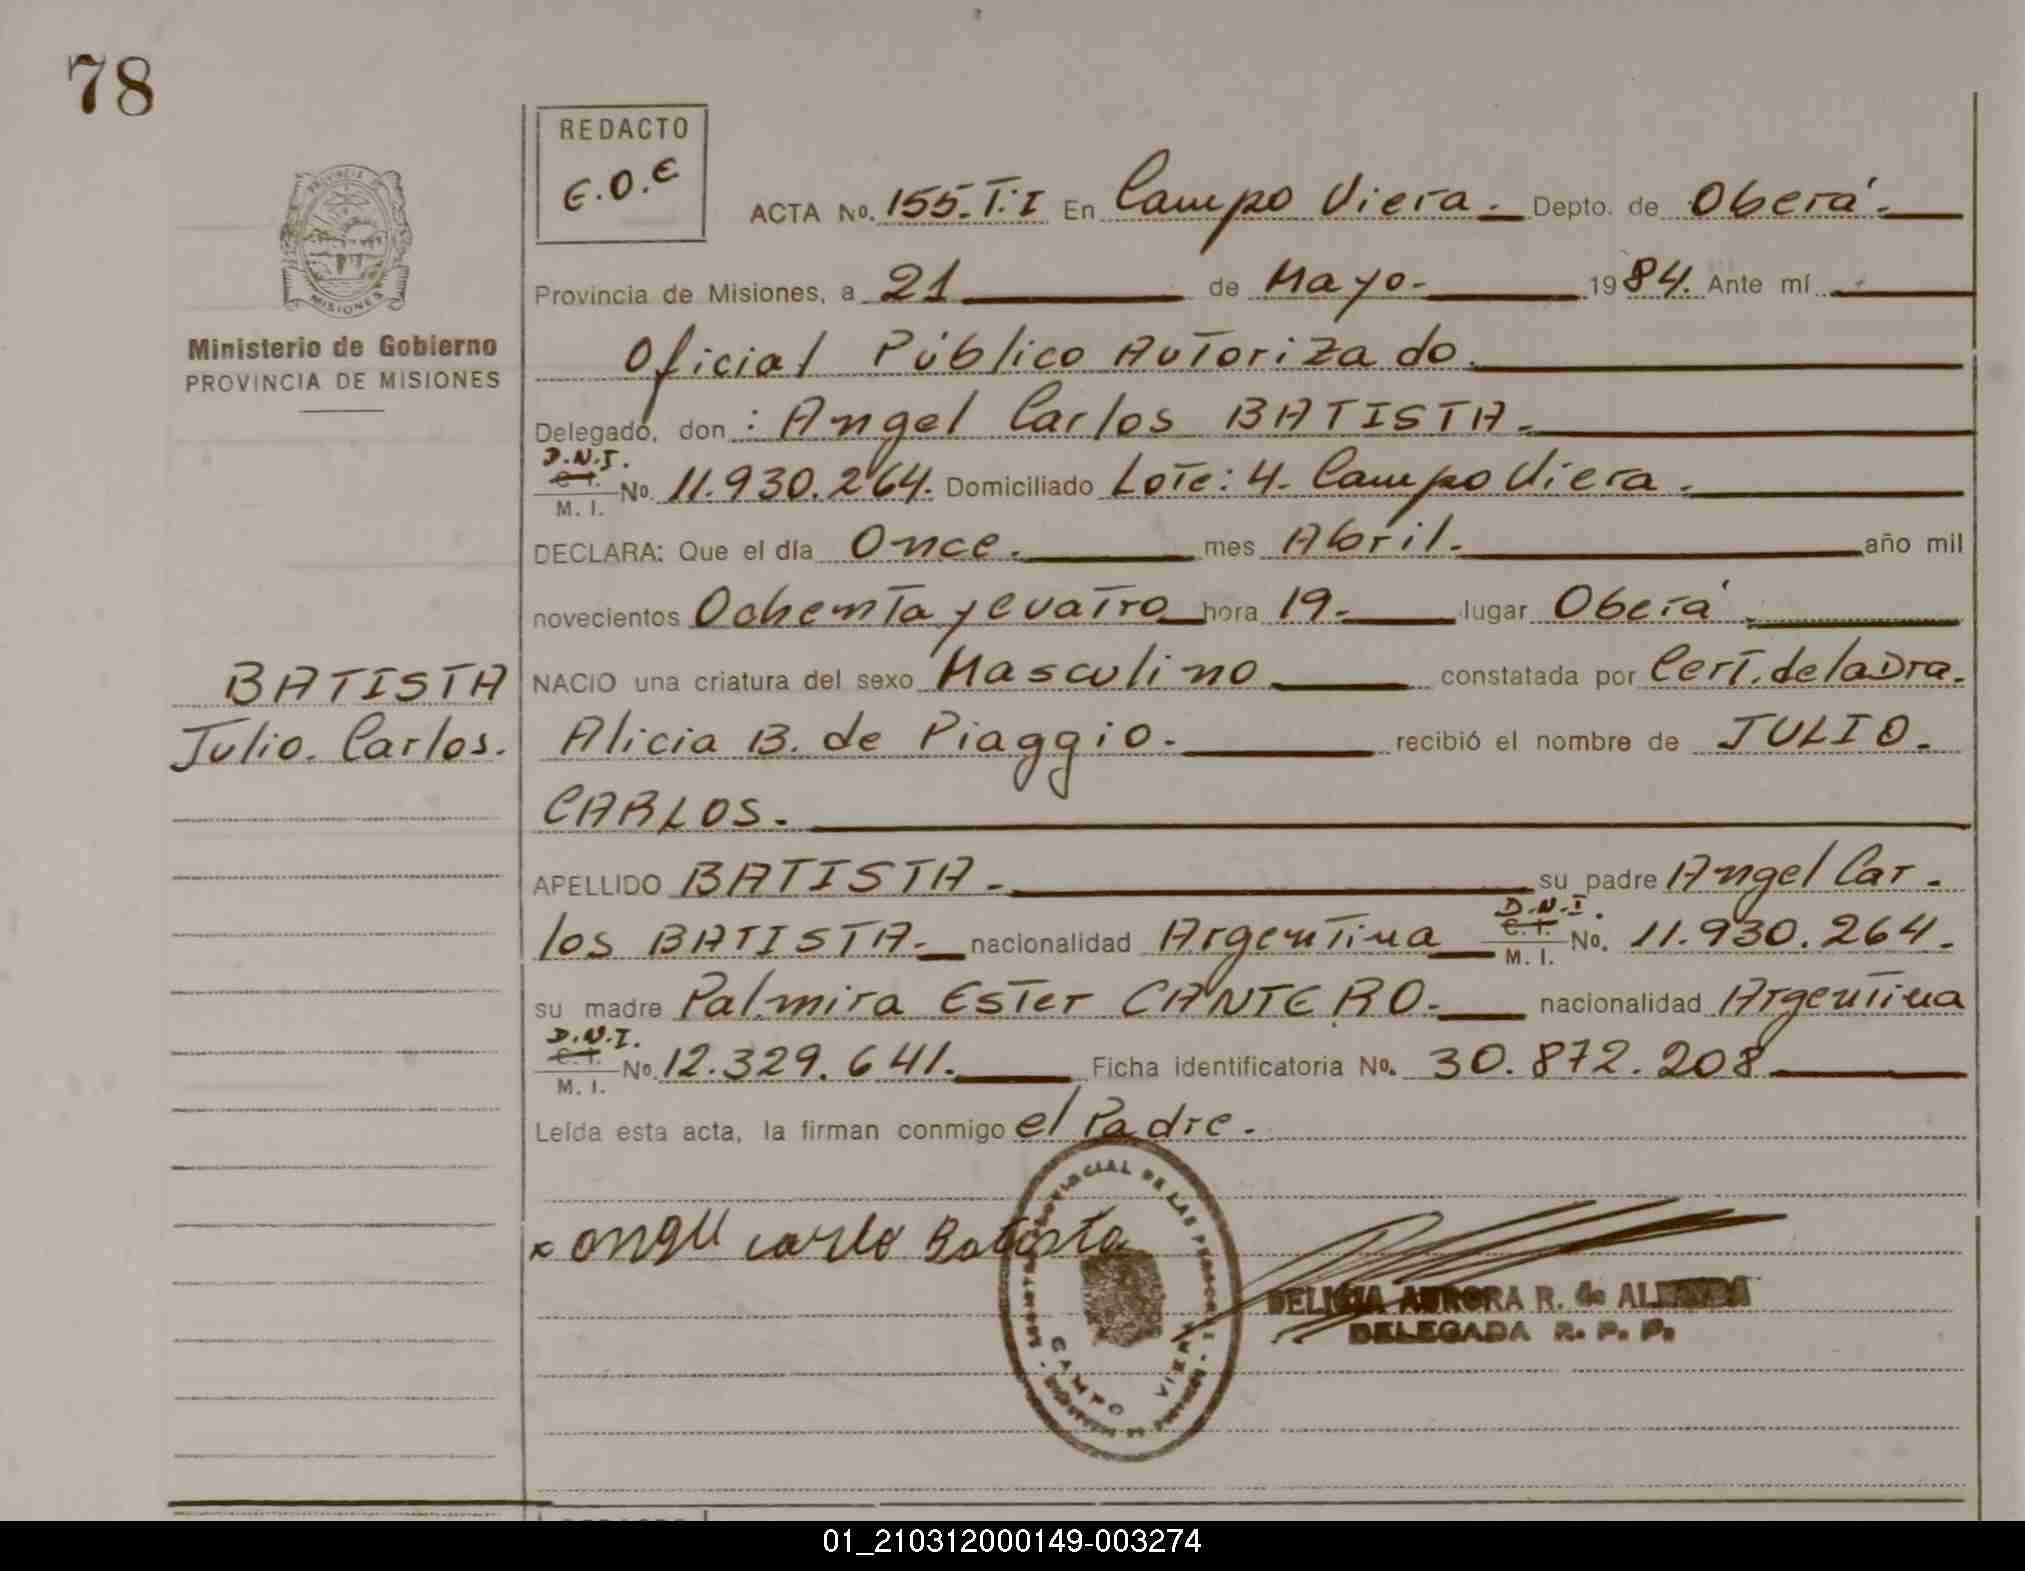 78
REDACTO
E.O.E
ACTA No. 155.T.I En Campo Viera. Depto. de Oberá.
Provincia de Misiones, a 21 de Mayo. 1984. Ante mí
Oficial Público Autorizado.
PROVINCIA DE
MISIONES
Ministerio de Gobierno
PROVINCIA DE MISIONES
Delegado, don: Angel Carlos BATISTA.
D.N.I.
C. I.
M. I. No. 11.930.264. Domiciliado Lote: 4. Campo Viera.
DECLARA: Que el día Once. mes Abril. año mil
novecientos Ochenta y cuatro hora 19. lugar Oberá
BATISTA
Julio. Carlos.
NACIO una criatura del sexo Masculino constatada por Cert. de la Dra.
Alicia B. de Piaggio. recibió el nombre de JULIO.
CARLOS.
APELLIDO BATISTA. su padre Angel Car.
los BATISTA. nacionalidad Argentina D.N.I. C. I. M. I. No. 11.930.264.
su madre Palmira Ester CANTERO. nacionalidad Argentina
D.N.I.
C. I.
M. I. No. 12.329.641. Ficha identificatoria No. 30.872.208
Leída esta acta, la firman conmigo el Padre.
x angel carlo Batista
PROVINCIAL DE LAS PERSONAS
CAMPO VIERA
DELICIA AURORA R. de
DELEGADA R. P. P.
01_210312000149-003274